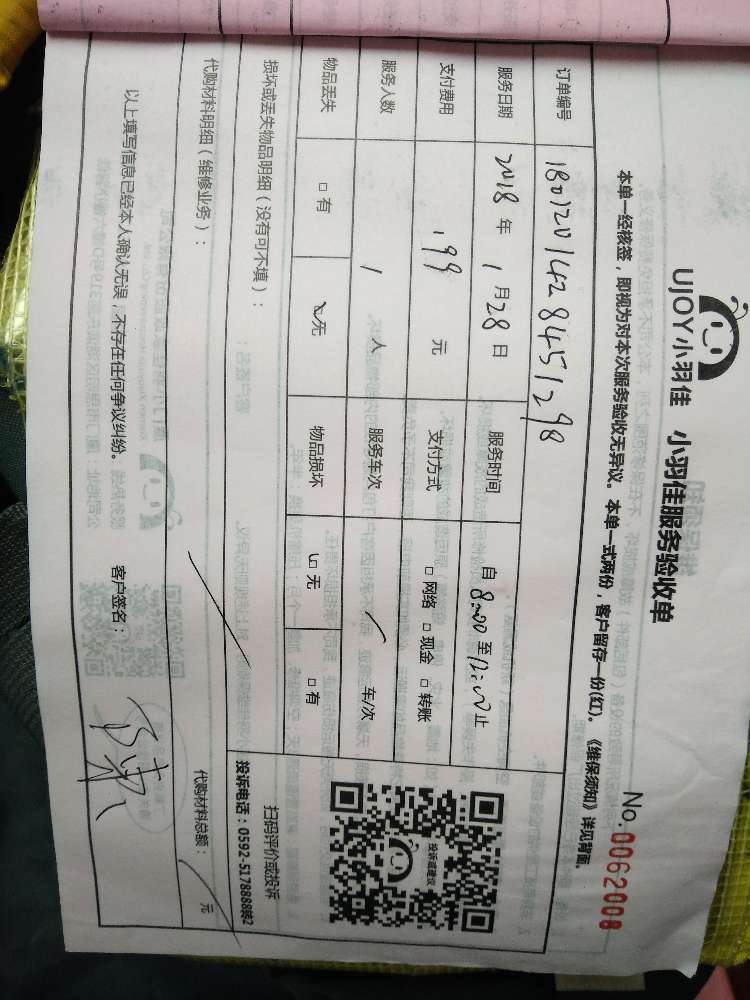 UJOY小羽佳 小羽佳服务验收单
No.0062008
本单一经核签，即视为对本次服务验收无异议。本单一式两份，客户留存一份(红)。《维保须知》详见背面。
订单编号 1801201428451298
服务日期 2018年1月28日 服务时间 自8:00至12:00止
支付费用 199元 支付方式 □网络 □现金 □转账
服务人数 1人 服务车次 / 车/次
物品丢失 □有 ☑无 物品损坏 ☑无 □有
投诉或建议
扫码评价或投诉
投诉电话：0592-5178888转2
损坏或丢失物品明细（没有可不填）：
代购材料明细（维修业务）： 代购材料总额： / 元
以上填写信息已经本人确认无误，不存在任何争议纠纷。 客户签名：